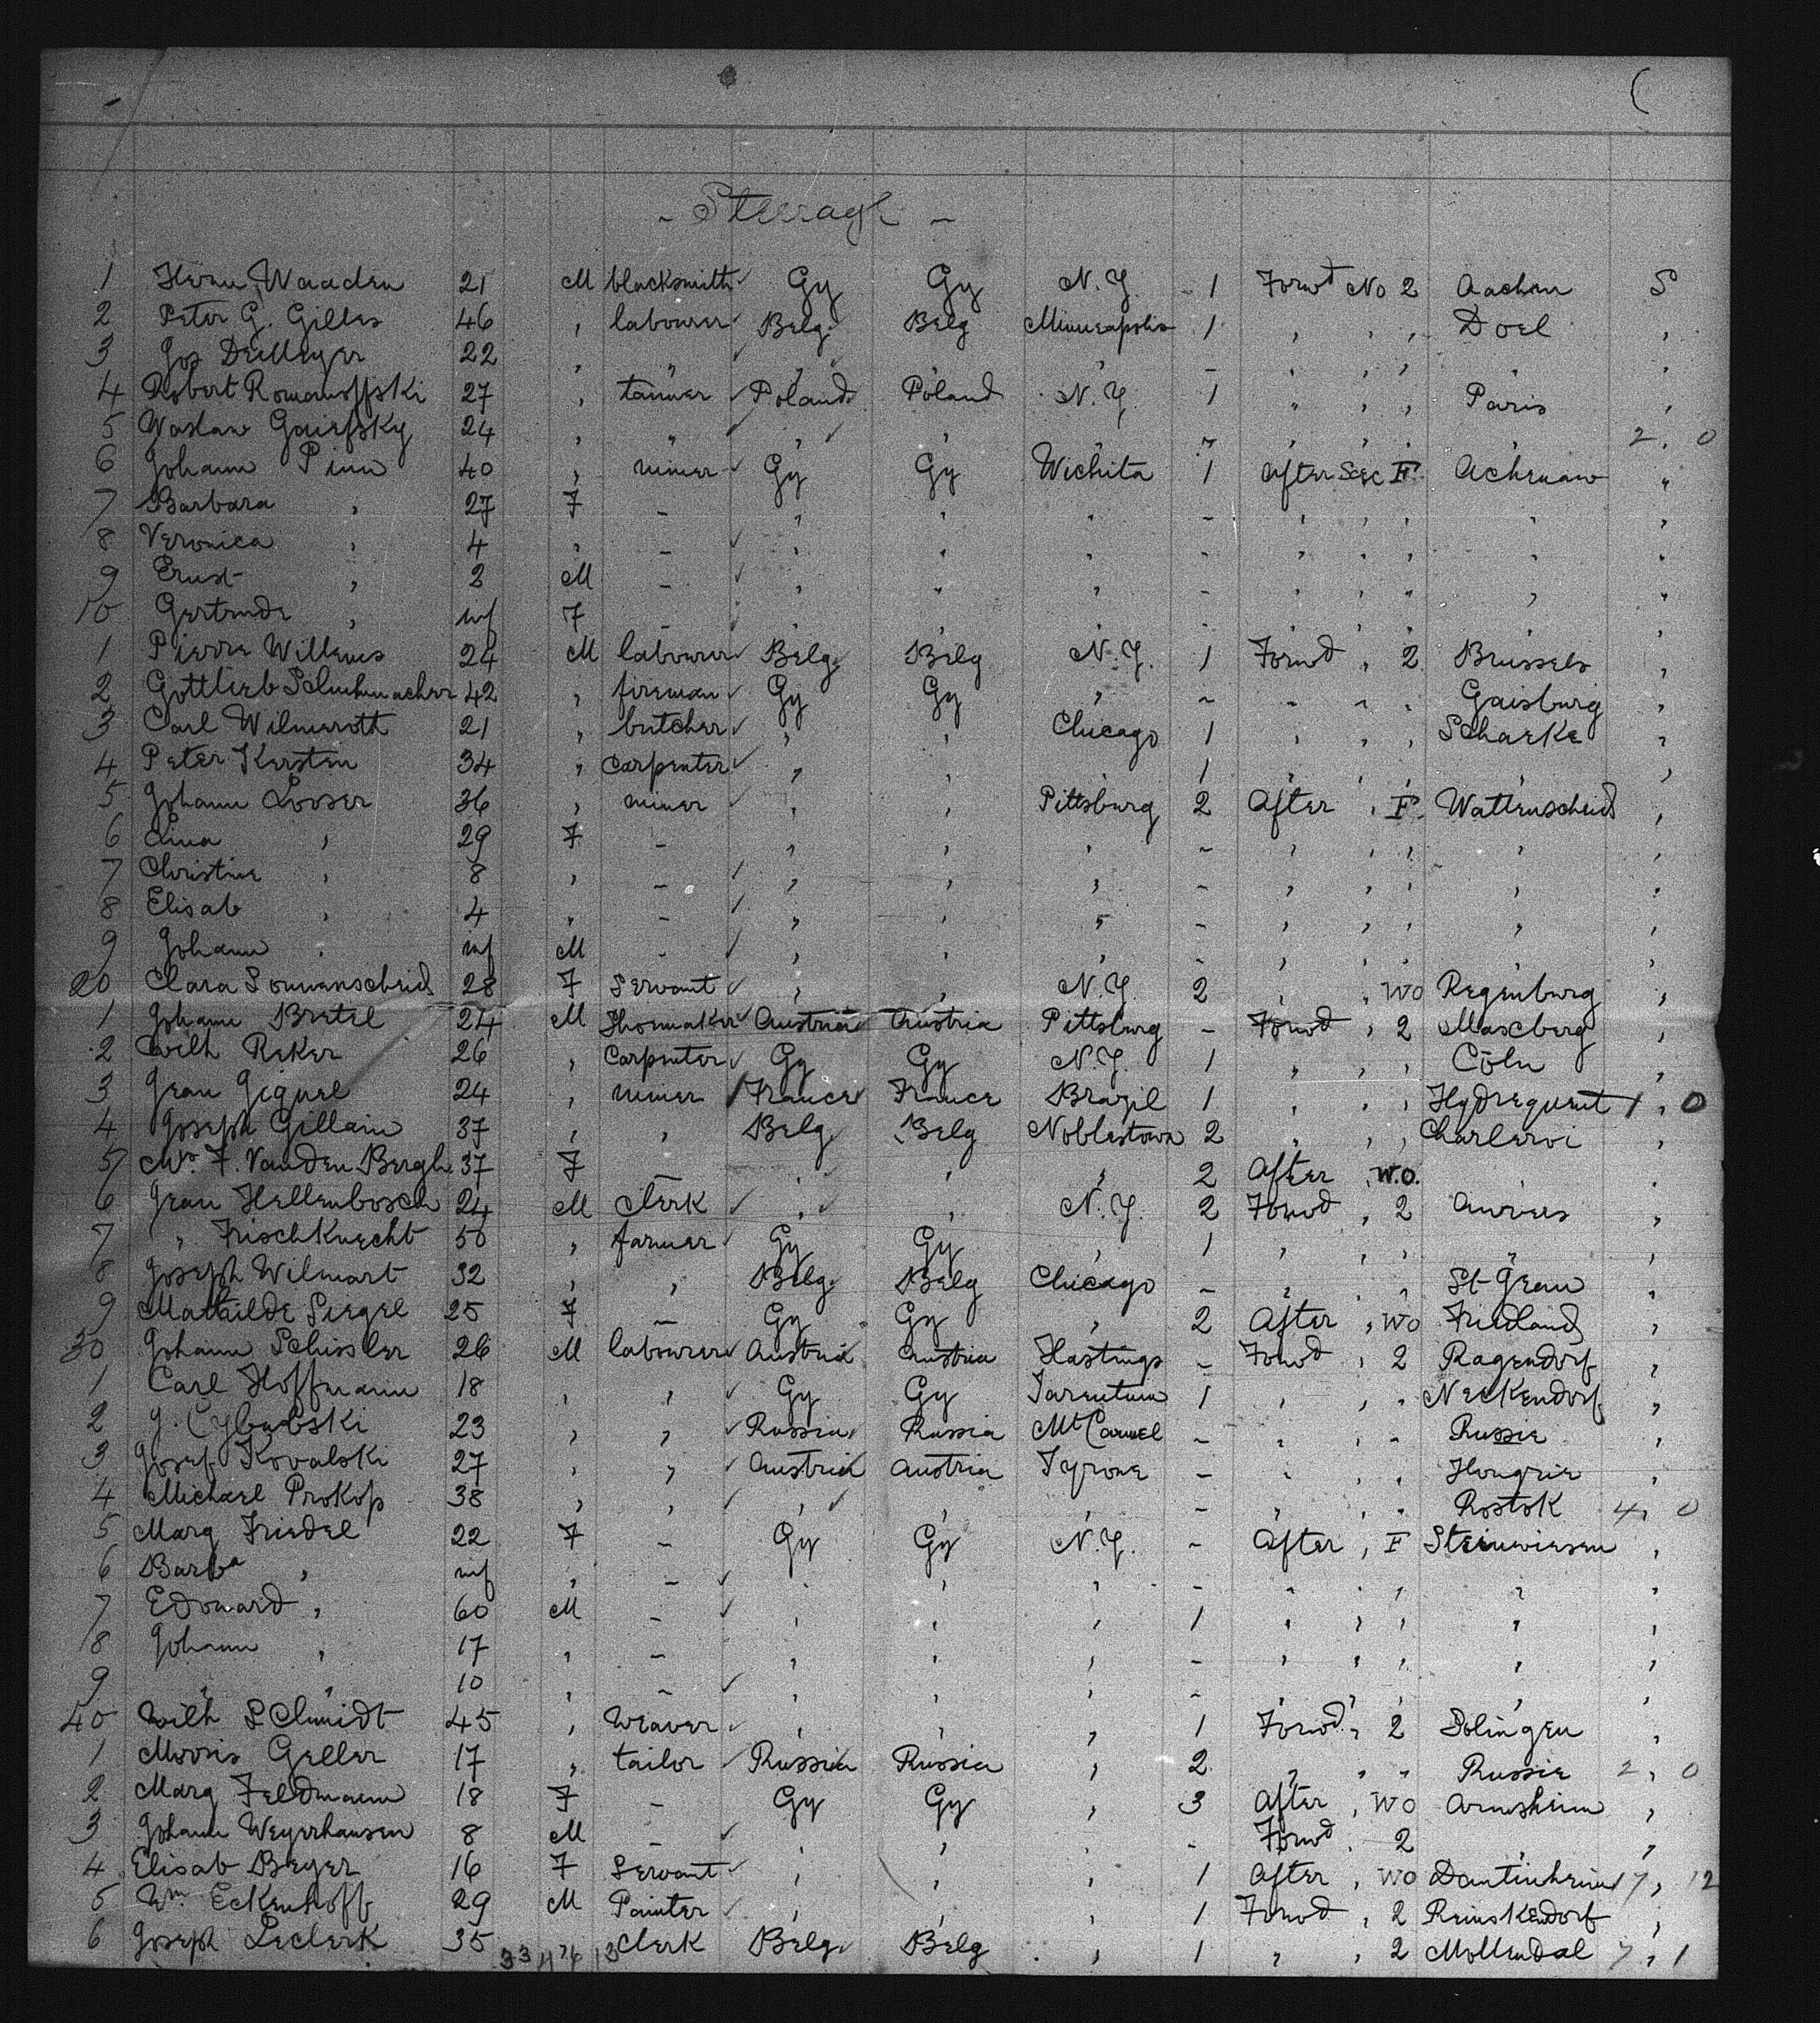 - Steerage -
1 Herm Waaden 21 M blacksmith Gy Gy N.Y. - 1 Forwd No 2 Aachen S
2 Peter G. Gilles 46 , labourer Belg. Belg Minneapolis 1 , , , Doel ,
3 Jos DeMeyer 22 , " , , , - " , , , ,
4 Robert Romanoffski 27 , tanner Poland Poland N.Y. 1 " , , Paris ,
5 Waslaw 24 , " , , , , , , , 2, 0
6 Johann Pinn 40 , miner Gy Gy Wichita 1 After Sec F Achenaw "
7 Barbara , 27 F - , , , - , , , , ,
8 Veronica , 4 , - , , , - , , , , ,
9 Ernst , 2 M - , , , - , , , , ,
10 Gertrude , inf F - , , , - , , , , ,
1 Pierre Willems 24 M labourer Belg. Belg N.Y. 1 Forwd , 2 Brussels ,
2 Gottlieb Schuhmacher 42 , fireman Gy Gy , - - - , Gaisburg ,
3 Carl Wilmeroth 21 , butcher , , Chicago 1 , , , Schaeke ,
4 Peter Kersten 34 , Carpenter , , , 1 , , , , ,
5 Johann Looser 36 , miner , , Pittsburg 2 After , F. Wattenscheid ,
6 Lina , 29 F - , , , - , , , , ,
7 Christine , 8 , - , , , - , , , , ,
8 Elisab , 4 , - , , , - , , , , ,
9 Johann , inf M - , , , - , , , , ,
20 Clara Sonnenscheid 28 F Servant , , N.Y. 2 , , WO Regenburg ,
1 Johann Bretel 24 M Shoemaker Austria Austria Pittsburg - Forwd , 2 Maxberg ,
2 Wilh Reker 26 , Carpenter Gy Gy N.Y. 1 , , , Cöln ,
3 Jean Giquel 24 , miner France France Brazil 1 , , , Hydrequent 1, 0
4 Joseph Gillain 37 , , Belg. Belg Noblestown 2 , , , Charleroi ,
5 Mrs F. Vanden Bergh 37 F - , , , 2 After , W.O. ,
6 Jean Hellenbosch 24 M Clerk , , N.Y. 2 Forwd , 2 Anvers ,
7 , Frischknecht 50 , farmer Gy Gy , 1 , , , , ,
8 Joseph Wilmart 32 , , Belg. Belg Chicago - , , , St Jean ,
9 Mathilde Siegel 25 F - Gy Gy , 2 After , WO Friedland ,
30 Johann Schissler 26 M labourer Austria Austria Hastings - Forwd , 2 Ragendorf ,
1 Carl Hoffmann 18 , , Gy Gy Tarentum 1 , , , Neckendorf ,
2 J. 23 , , Russia Russia Mt Carmel - , , - Russie ,
3 Josef Kovalski 27 , , Austria Austria Tyrone - , , , Hongrie ,
4 Michael Prokop 38 , , , , , - , , , Rostok 4, 0
5 Marg Friedel 22 F - Gy Gy N.Y. - After , F Steinwiesen ,
6 Barba , inf , - , , , - , , , , ,
7 Edouard , 60 M - , , , 1 , , , , ,
8 Johann , 17 , - , , , - , , , , ,
9 , , 10 , - , , , - , , , , ,
40 Wilh Schmidt 45 , Weaver , , , 1 Forwd , 2 Solingen ,
1 Morris Geller 17 , tailor Russia Russia , 2 , , , Russie 2, 0
2 Marg Feldmann 18 F - Gy Gy , 3 After , WO Arnsheim ,
3 Johann Weyerhausen 8 M - , , , - Forwd , 2 , ,
4 Elisab Beyer 16 F Servant , , , 1 After , WO Dantinheim 17, 12
5 Wm Eckenhoff 29 M Painter , , , 1 Forwd , 2 Reinskendorf ,
6 Joseph Leclerk 35 Clerk Belg. Belg , 1 , , 2 Mollendal 7, 1